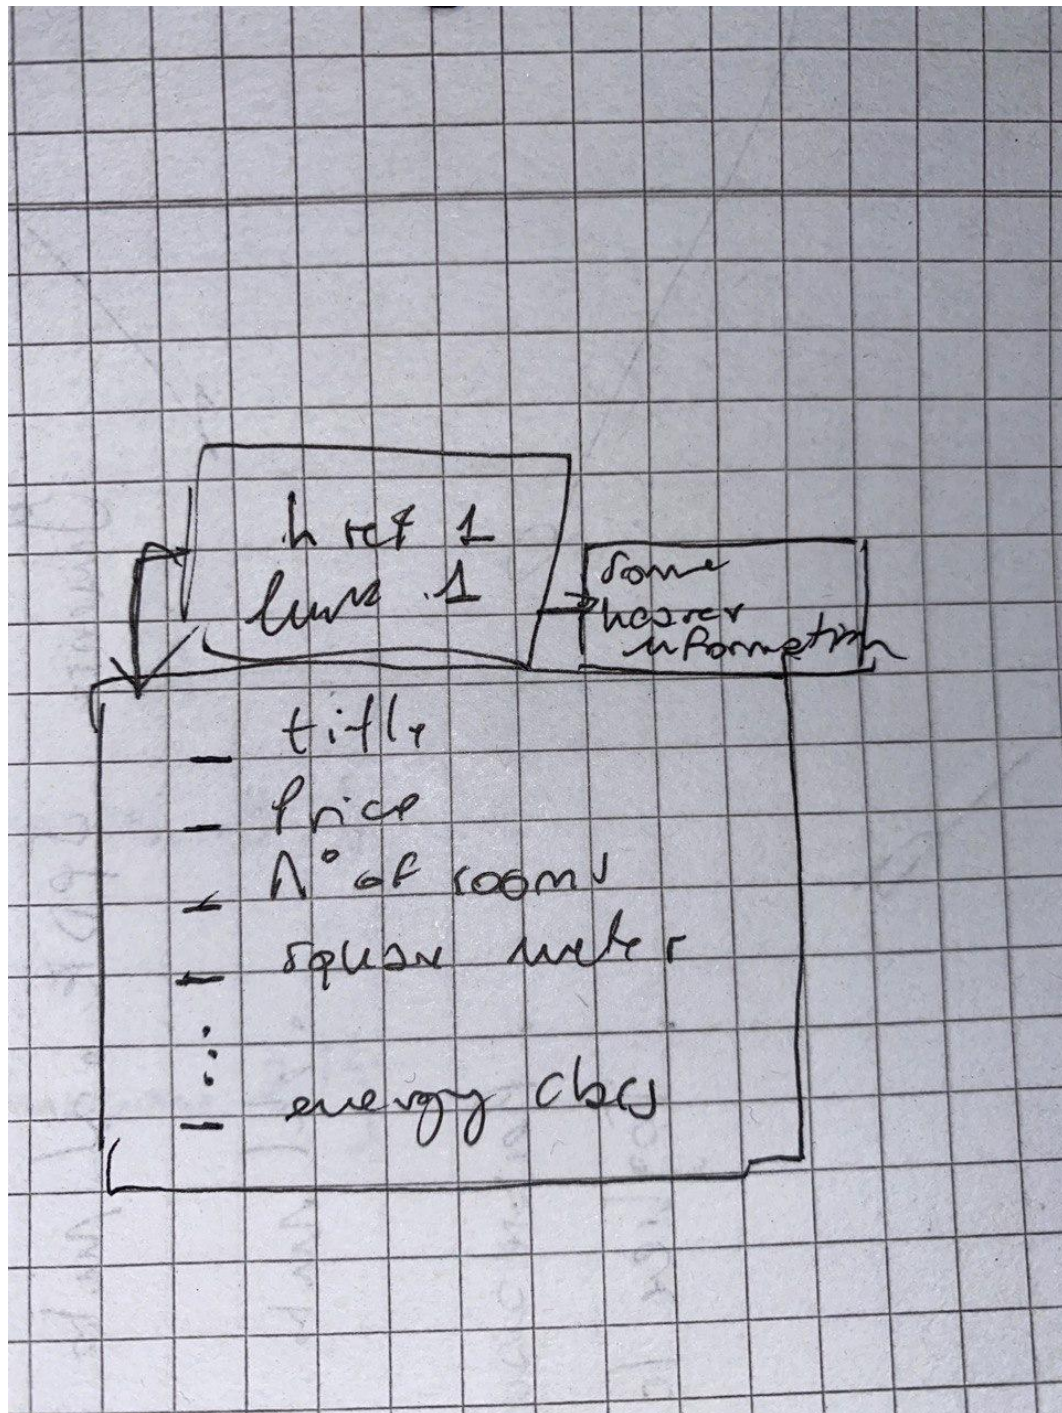 href 1
link 1
some
header
information
title
Price
N° of rooms
square meter
energy class